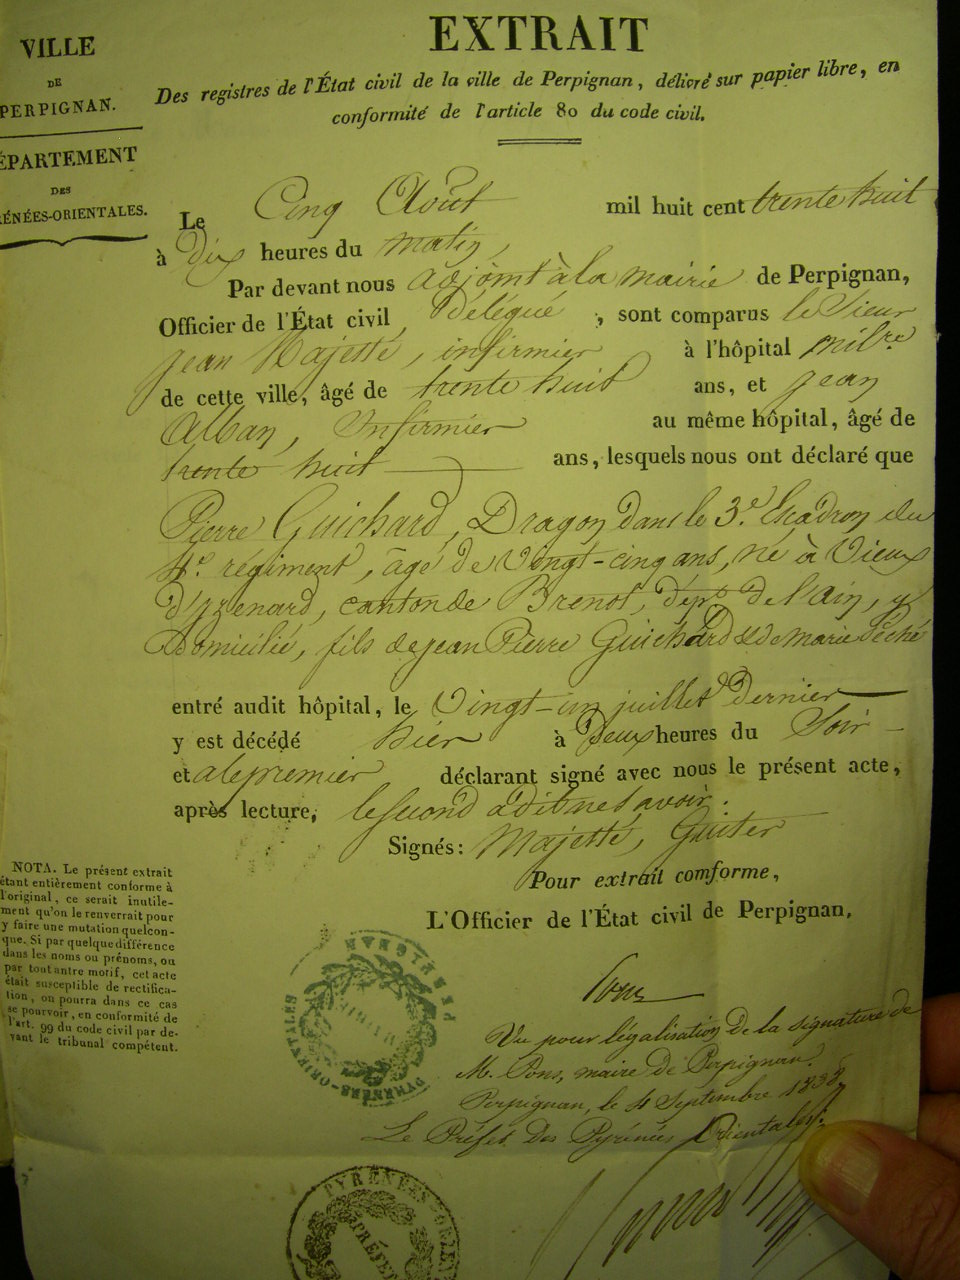 VILLE
DE
PERPIGNAN.
ÉPARTEMENT
DES
RÉNÉES-ORIENTALES.
EXTRAIT
Des registres de l'État civil de la ville de Perpignan, délivré sur papier libre, en
conformité de l'article 80 du code civil.
Le Cinq Août mil huit cent trente huit
à dix heures du matin,
Par devant nous adjoint à la mairie de Perpignan,
Officier de l'État civil, délégué, sont comparus le Sieur
Jean Majesté, infirmier à l'hôpital milre
de cette ville, âgé de trente huit ans, et Jean
Alban, Infirmier au même hôpital, âgé de
trente huit ans, lesquels nous ont déclaré que
Pierre Guichard, Dragon dans le 3e Escadron du
4e régiment, âgé de Vingt-cinq ans, né à Vieux
d'Izenard, canton de Brenot, dépt de l'ain, y
Domicilié, fils de jean Pierre Guichard & de marie Péché
entré audit hôpital, le Vingt-un juillet Dernier
y est décédé hier à Deux heures du Soir
et a le premier déclarant signé avec nous le présent acte,
après lecture, le second a dit ne savoir.
Signés: Majesté, Guiter
Pour extrait comforme,
L'Officier de l'État civil de Perpignan,
Pons
NOTA. Le présent extrait
étant entièrement conforme à
l'original, ce serait inutile-
ment qu'on le renverrait pour
y faire une mutation quelcon-
que. Si par quelque différence
dans les noms ou prénoms, ou
par tout autre motif, cet acte
était susceptible de rectifica-
tion, on pourra dans ce cas
se pourvoir, en conformité de
l'art. 99 du code civil par de-
vant le tribunal compétent.
PERPIGNAN
MAIRIE
PYRÉNÉES-ORIENTALES
Vu pour légalisation de la signature de
M. Pons, maire de Perpignan.
Perpignan, le 4 Septembre 1838
Le Préfet des Pyrénées Orientales.
PYRÉNÉES-ORIE
PRÉFE